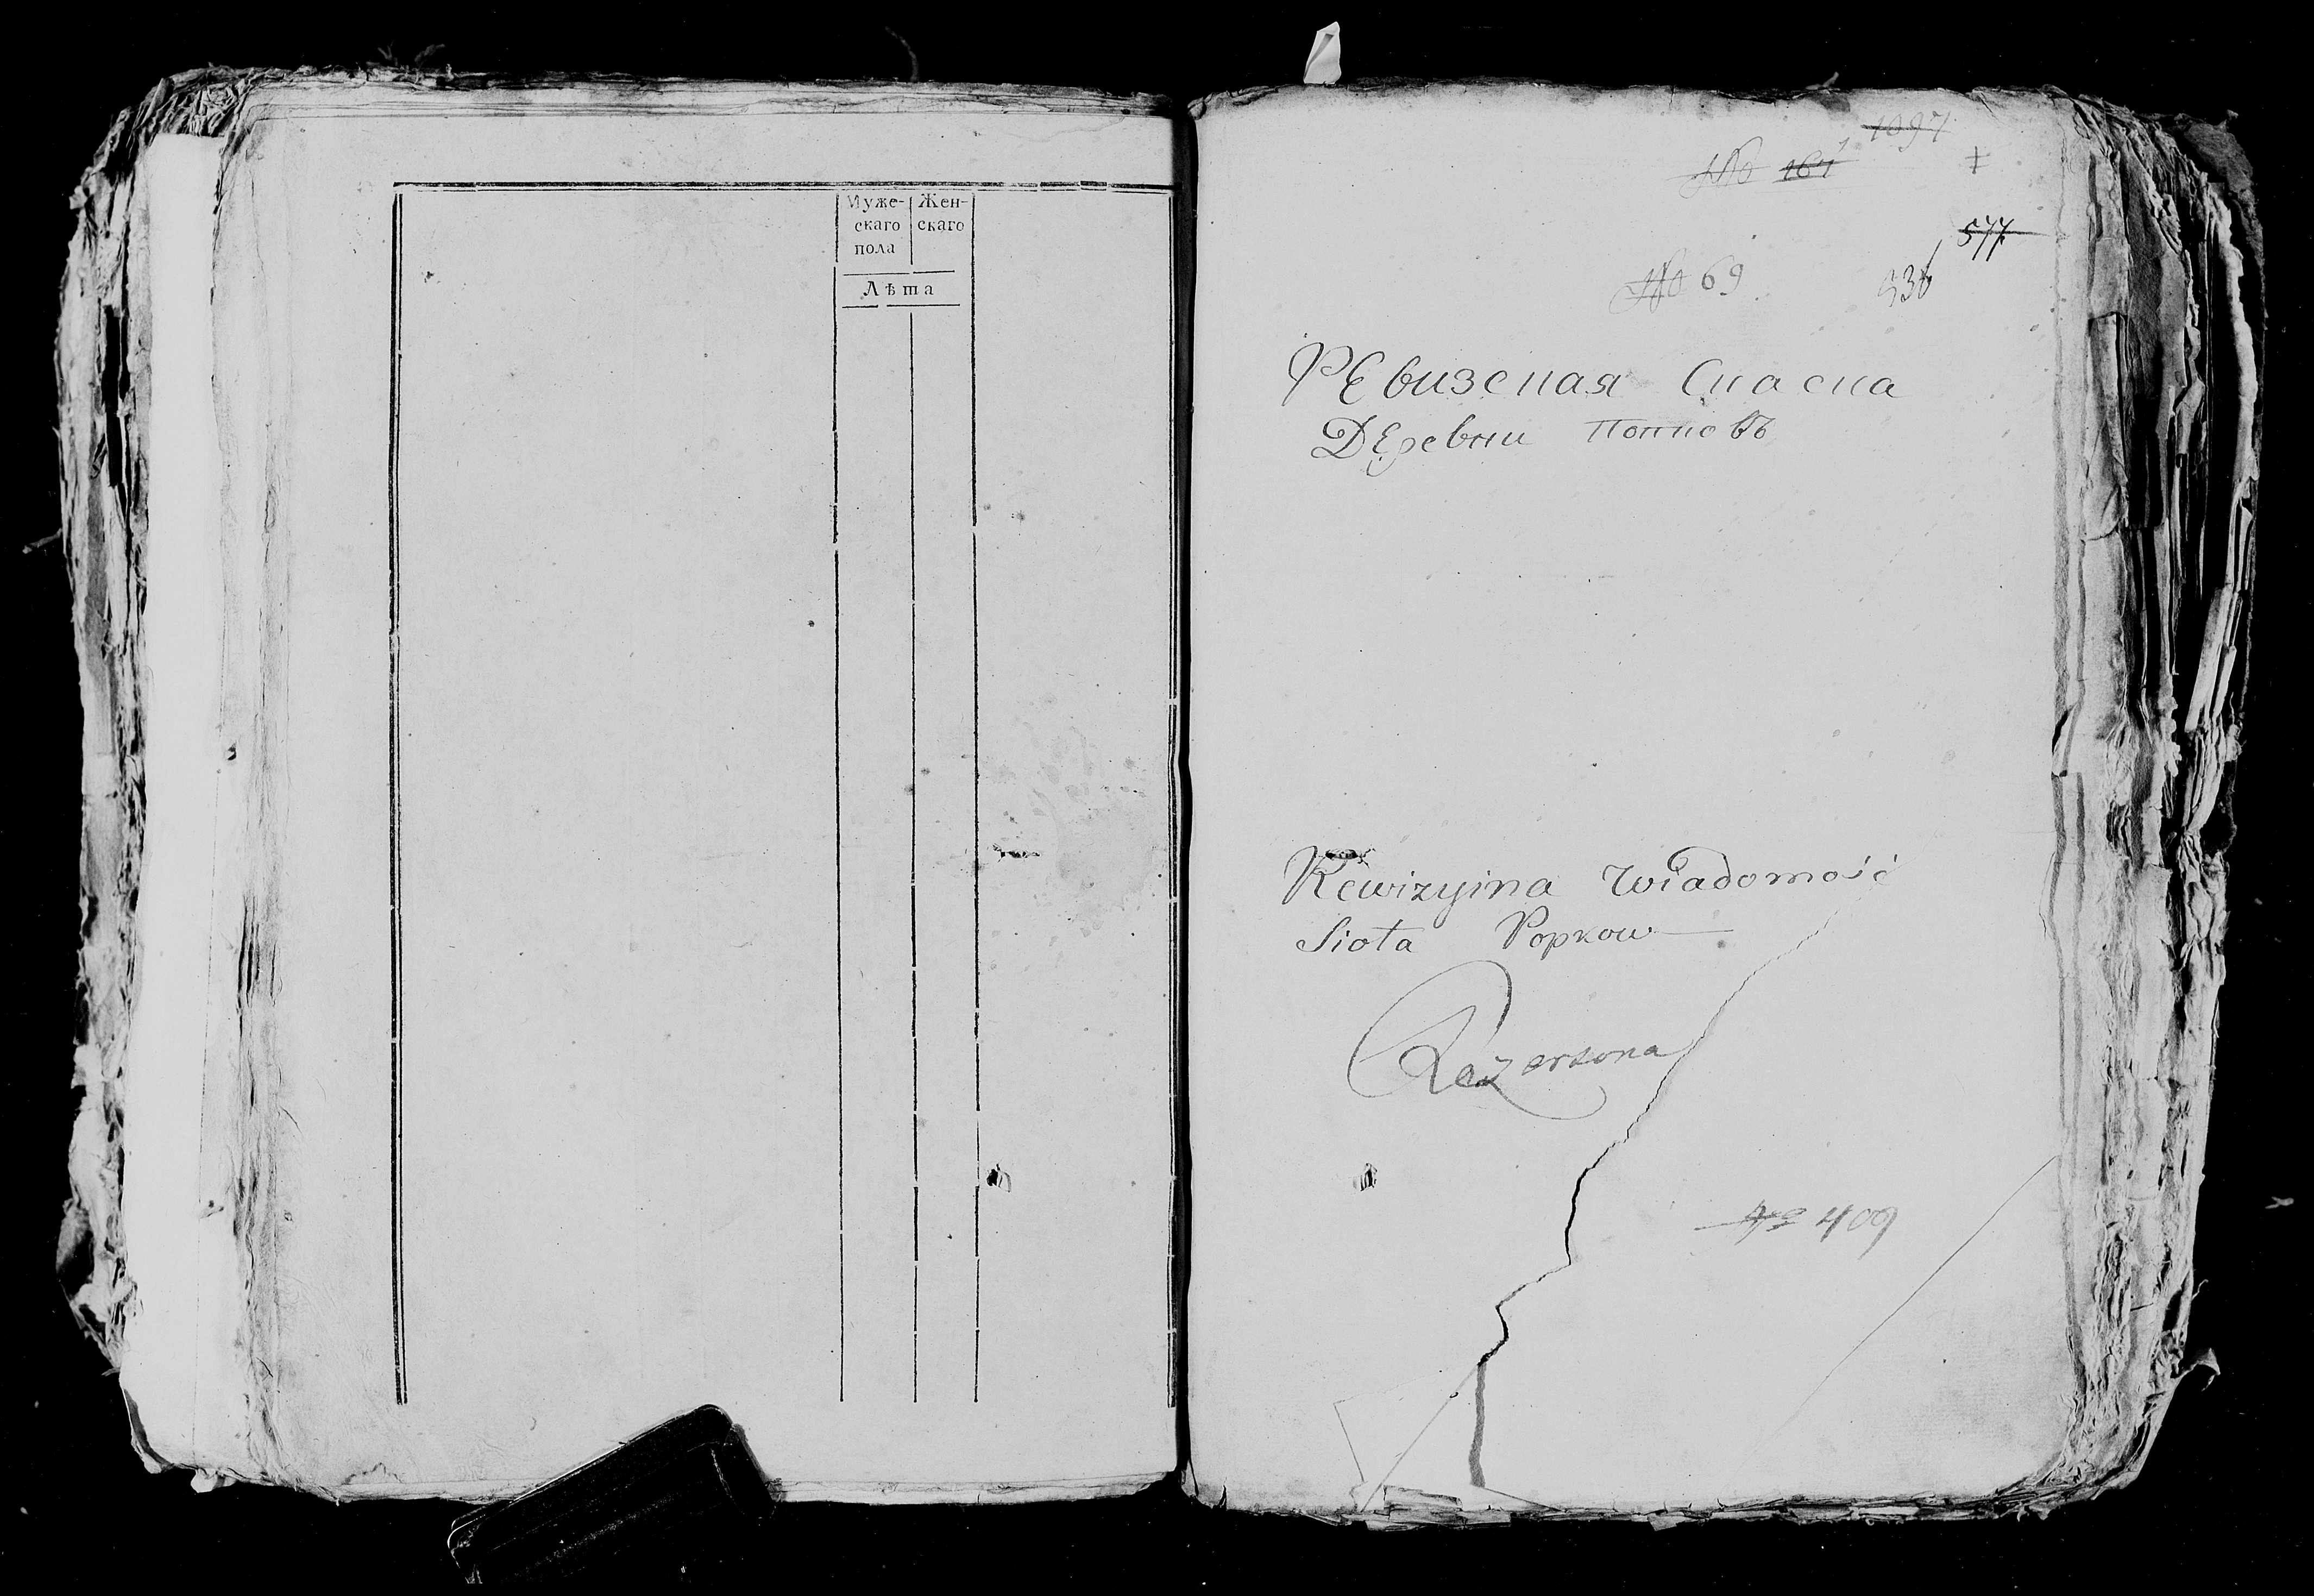 Муже-
скаго
пола
Жен-
скаго
Лѣта
1097
No 167
577
No 69
536
РЕвизская Скаска
ДЕревни Попковъ
Rewizyina Wiadomość
Sioła Popkow
No 409